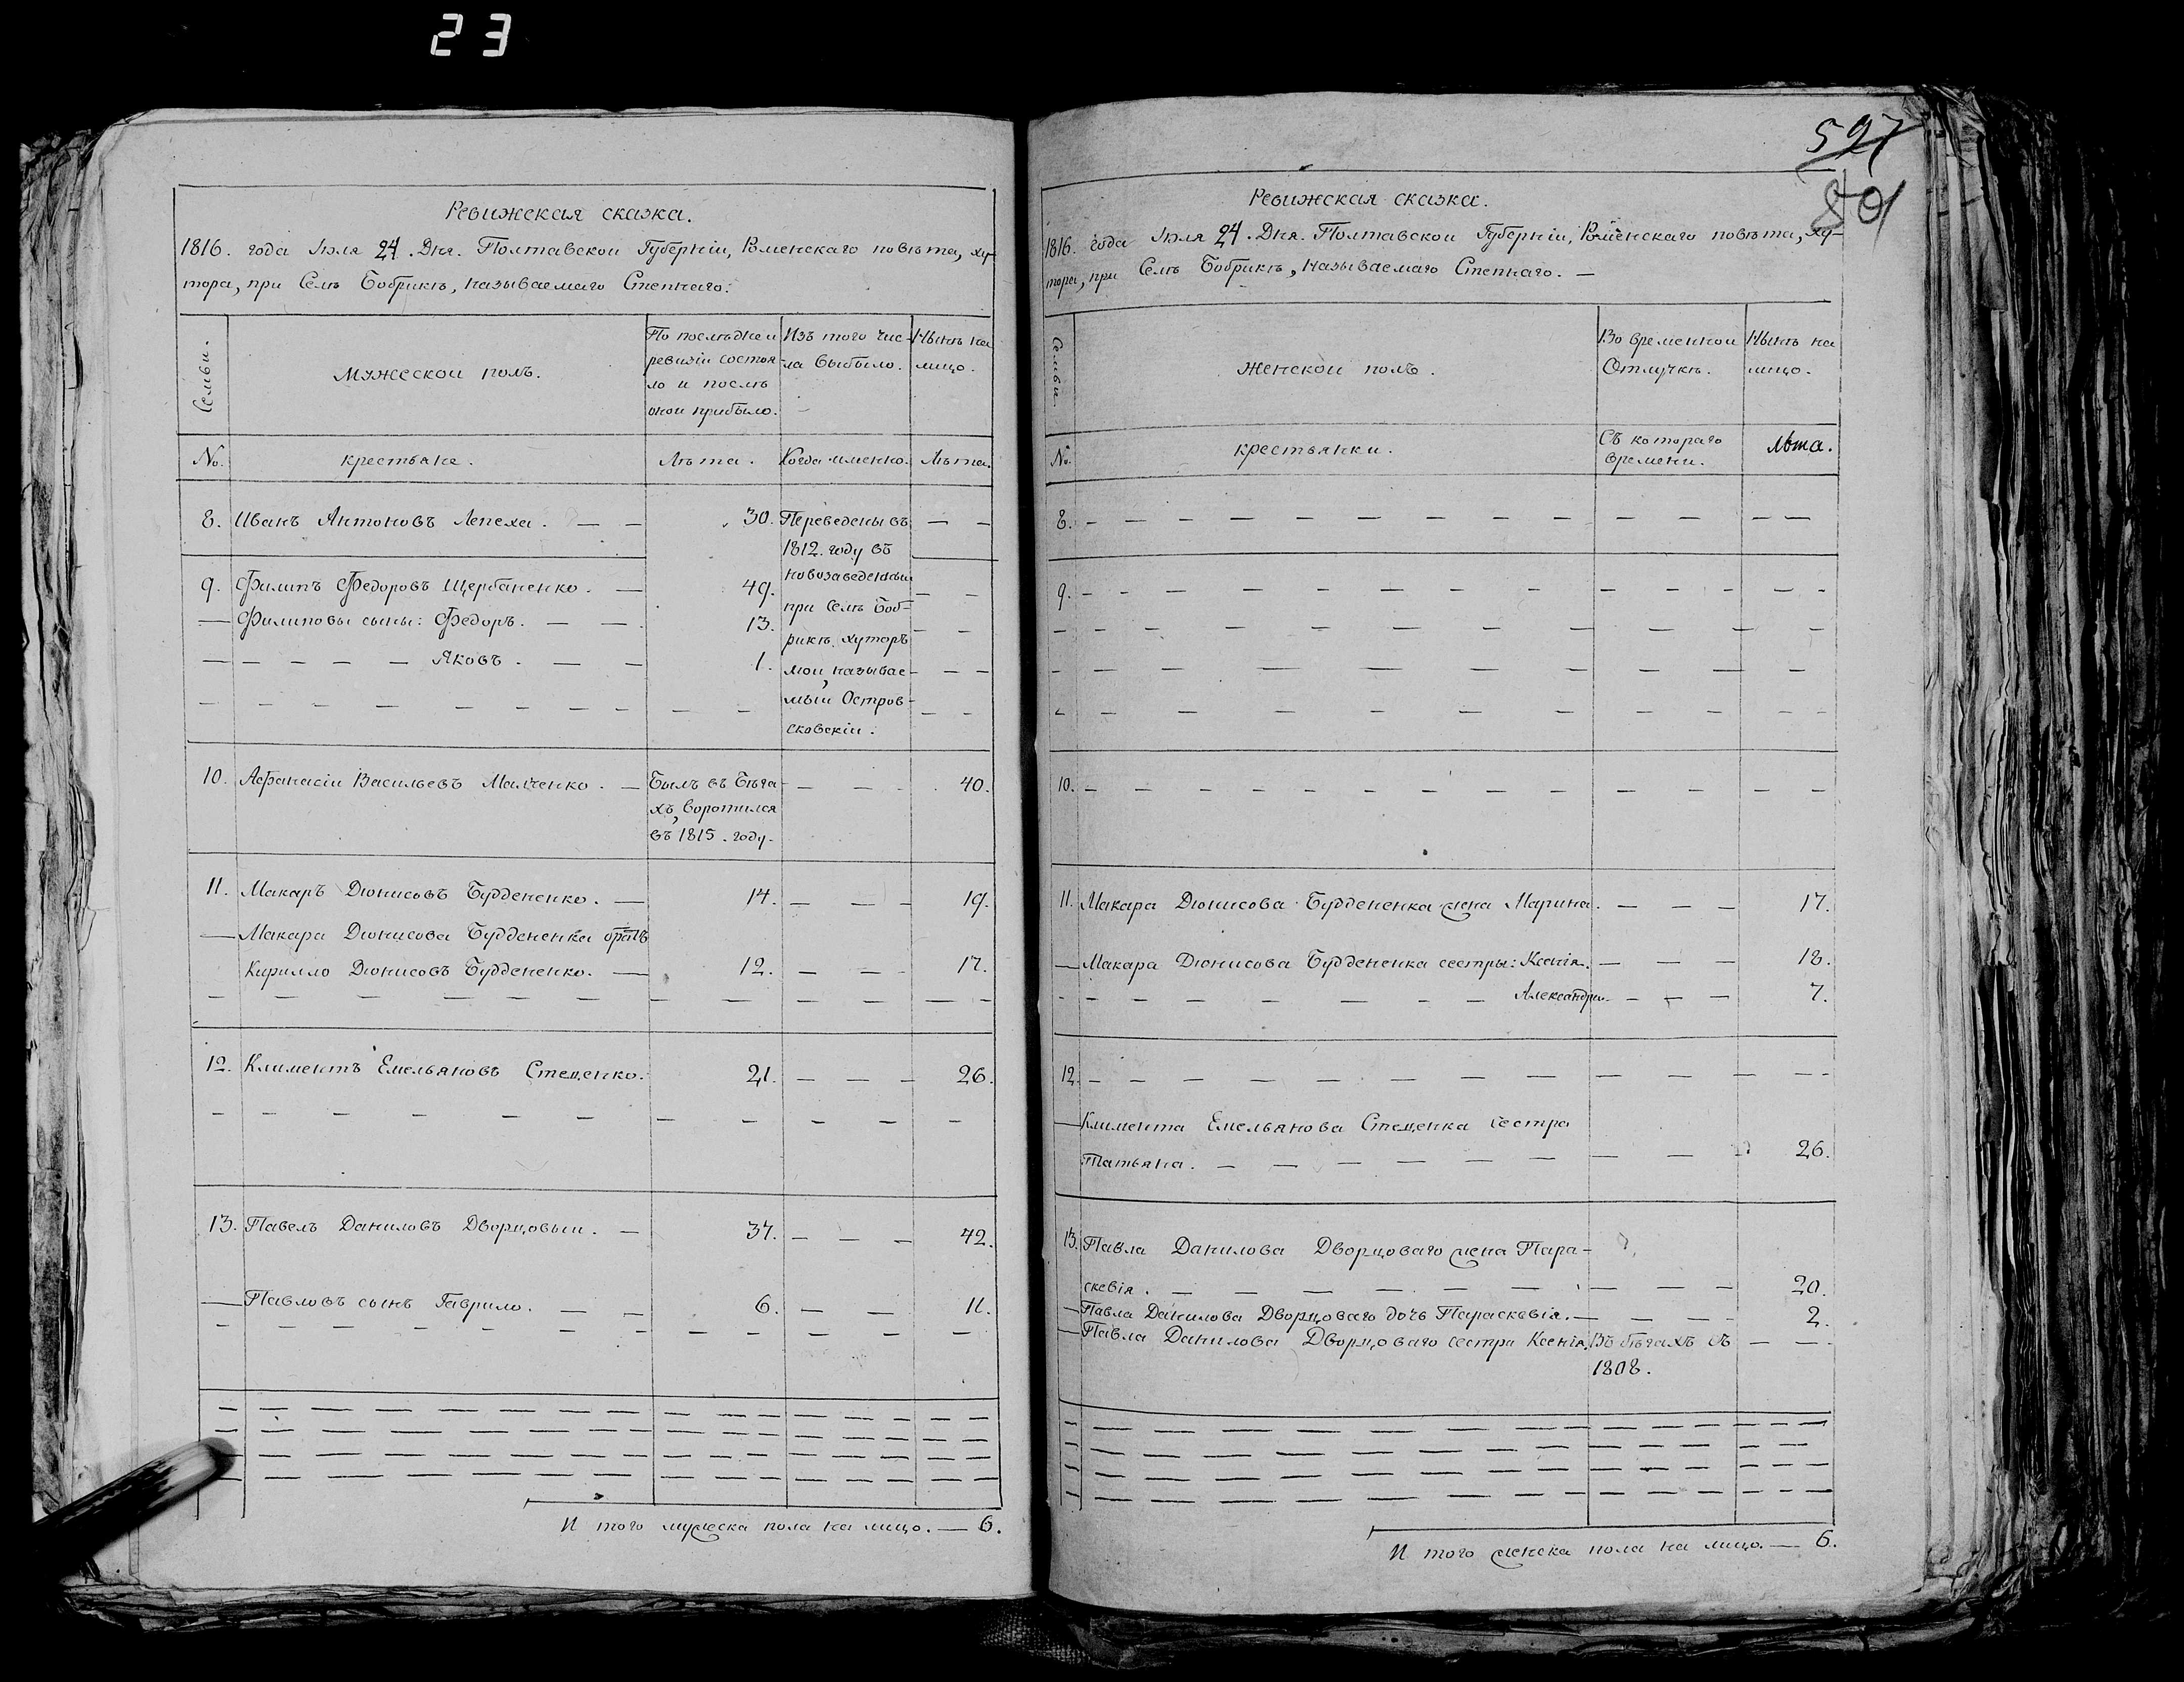 23
Ревижская сказка.
1816. года Іюля 24. Дня. Полтавской Губерніи, Роменскаго повѣта, ху-
тора, при Селѣ Бобрикѣ, называемаго Степнаго.
Семьи.
Мужеской полъ.
По послѣдней
ревизіи состоя-
ло и послѣ
оной прибыло.
Изъ того чис-
ла выбыло.
Нынѣ на
лицо.
№.
крестьяне.
Лѣта.
Когда имянно.
Лѣта.
8. Иванъ Антоновъ Лепеха. — — 30. Переведены въ — —
1812. году въ
новозаведенный
9. Филипъ Федоровъ Щербаненко. — 49. — —
при Селѣ Боб-
— Филиповы сыны: Федоръ. — — 13. — —
рикѣ, хуторъ
— — — — — Яковъ. — — 1. — —
мой, называе-
мый Остров-
сковскій.
10. Афанасій Васильевъ Малченко. — Былъ въ бѣга- — — 40.
хъ, воротился
въ 1815. году.
11. Макаръ Дионисовъ Буддененко. — 14. — — — 19.
— Макара Дионисова Буддененка братъ
Кирилло Дионисовъ Буддененко. — 12. — — — 17.
12. Климентъ Емельяновъ Стеценко. 21. — — — 26.
13. Павелъ Даниловъ Дворцовый. — 37. — — — 42.
— Павловъ сынъ Гаврило. — — 6. — — 11.
И того мужеска пола на лицо. — 6.
597
801
Ревижская сказка.
1816. года Іюля 24. Дня. Полтавской Губерніи, Роменскаго повѣта, ху-
тора, при Селѣ Бобрикѣ, называемаго Степнаго. —
Семьи.
Женской полъ.
Во временной
Отлучкѣ.
Нынѣ на
лицо.
№.
крестьянки.
Съ котораго
времени.
лѣта.
8. — — — — — — — — — — —
9. — — — — — — — — — — —
10. — — — — — — — — — — —
11. Макара Дионисова Буддененка жена Марина. — — — 17.
— Макара Дионисова Буддененка сестры: Ксенія. — — — 18.
— — — — — — — — Александра. — — — 7.
12. — — — — — — — — — — —
— Климента Емельянова Стеценка сестра
Татьяна. — — — — — — — — 26.
13. Павла Данилова Дворцоваго жена Пара-
скевія. — — — — — — — — — 20.
— Павла Данилова Дворцоваго дочь Параскевія. — — — — 2.
— Павла Данилова Дворцоваго сестра Ксенія. Въ бѣгахъ съ — —
1808.
И того женска пола на лицо. — 6.